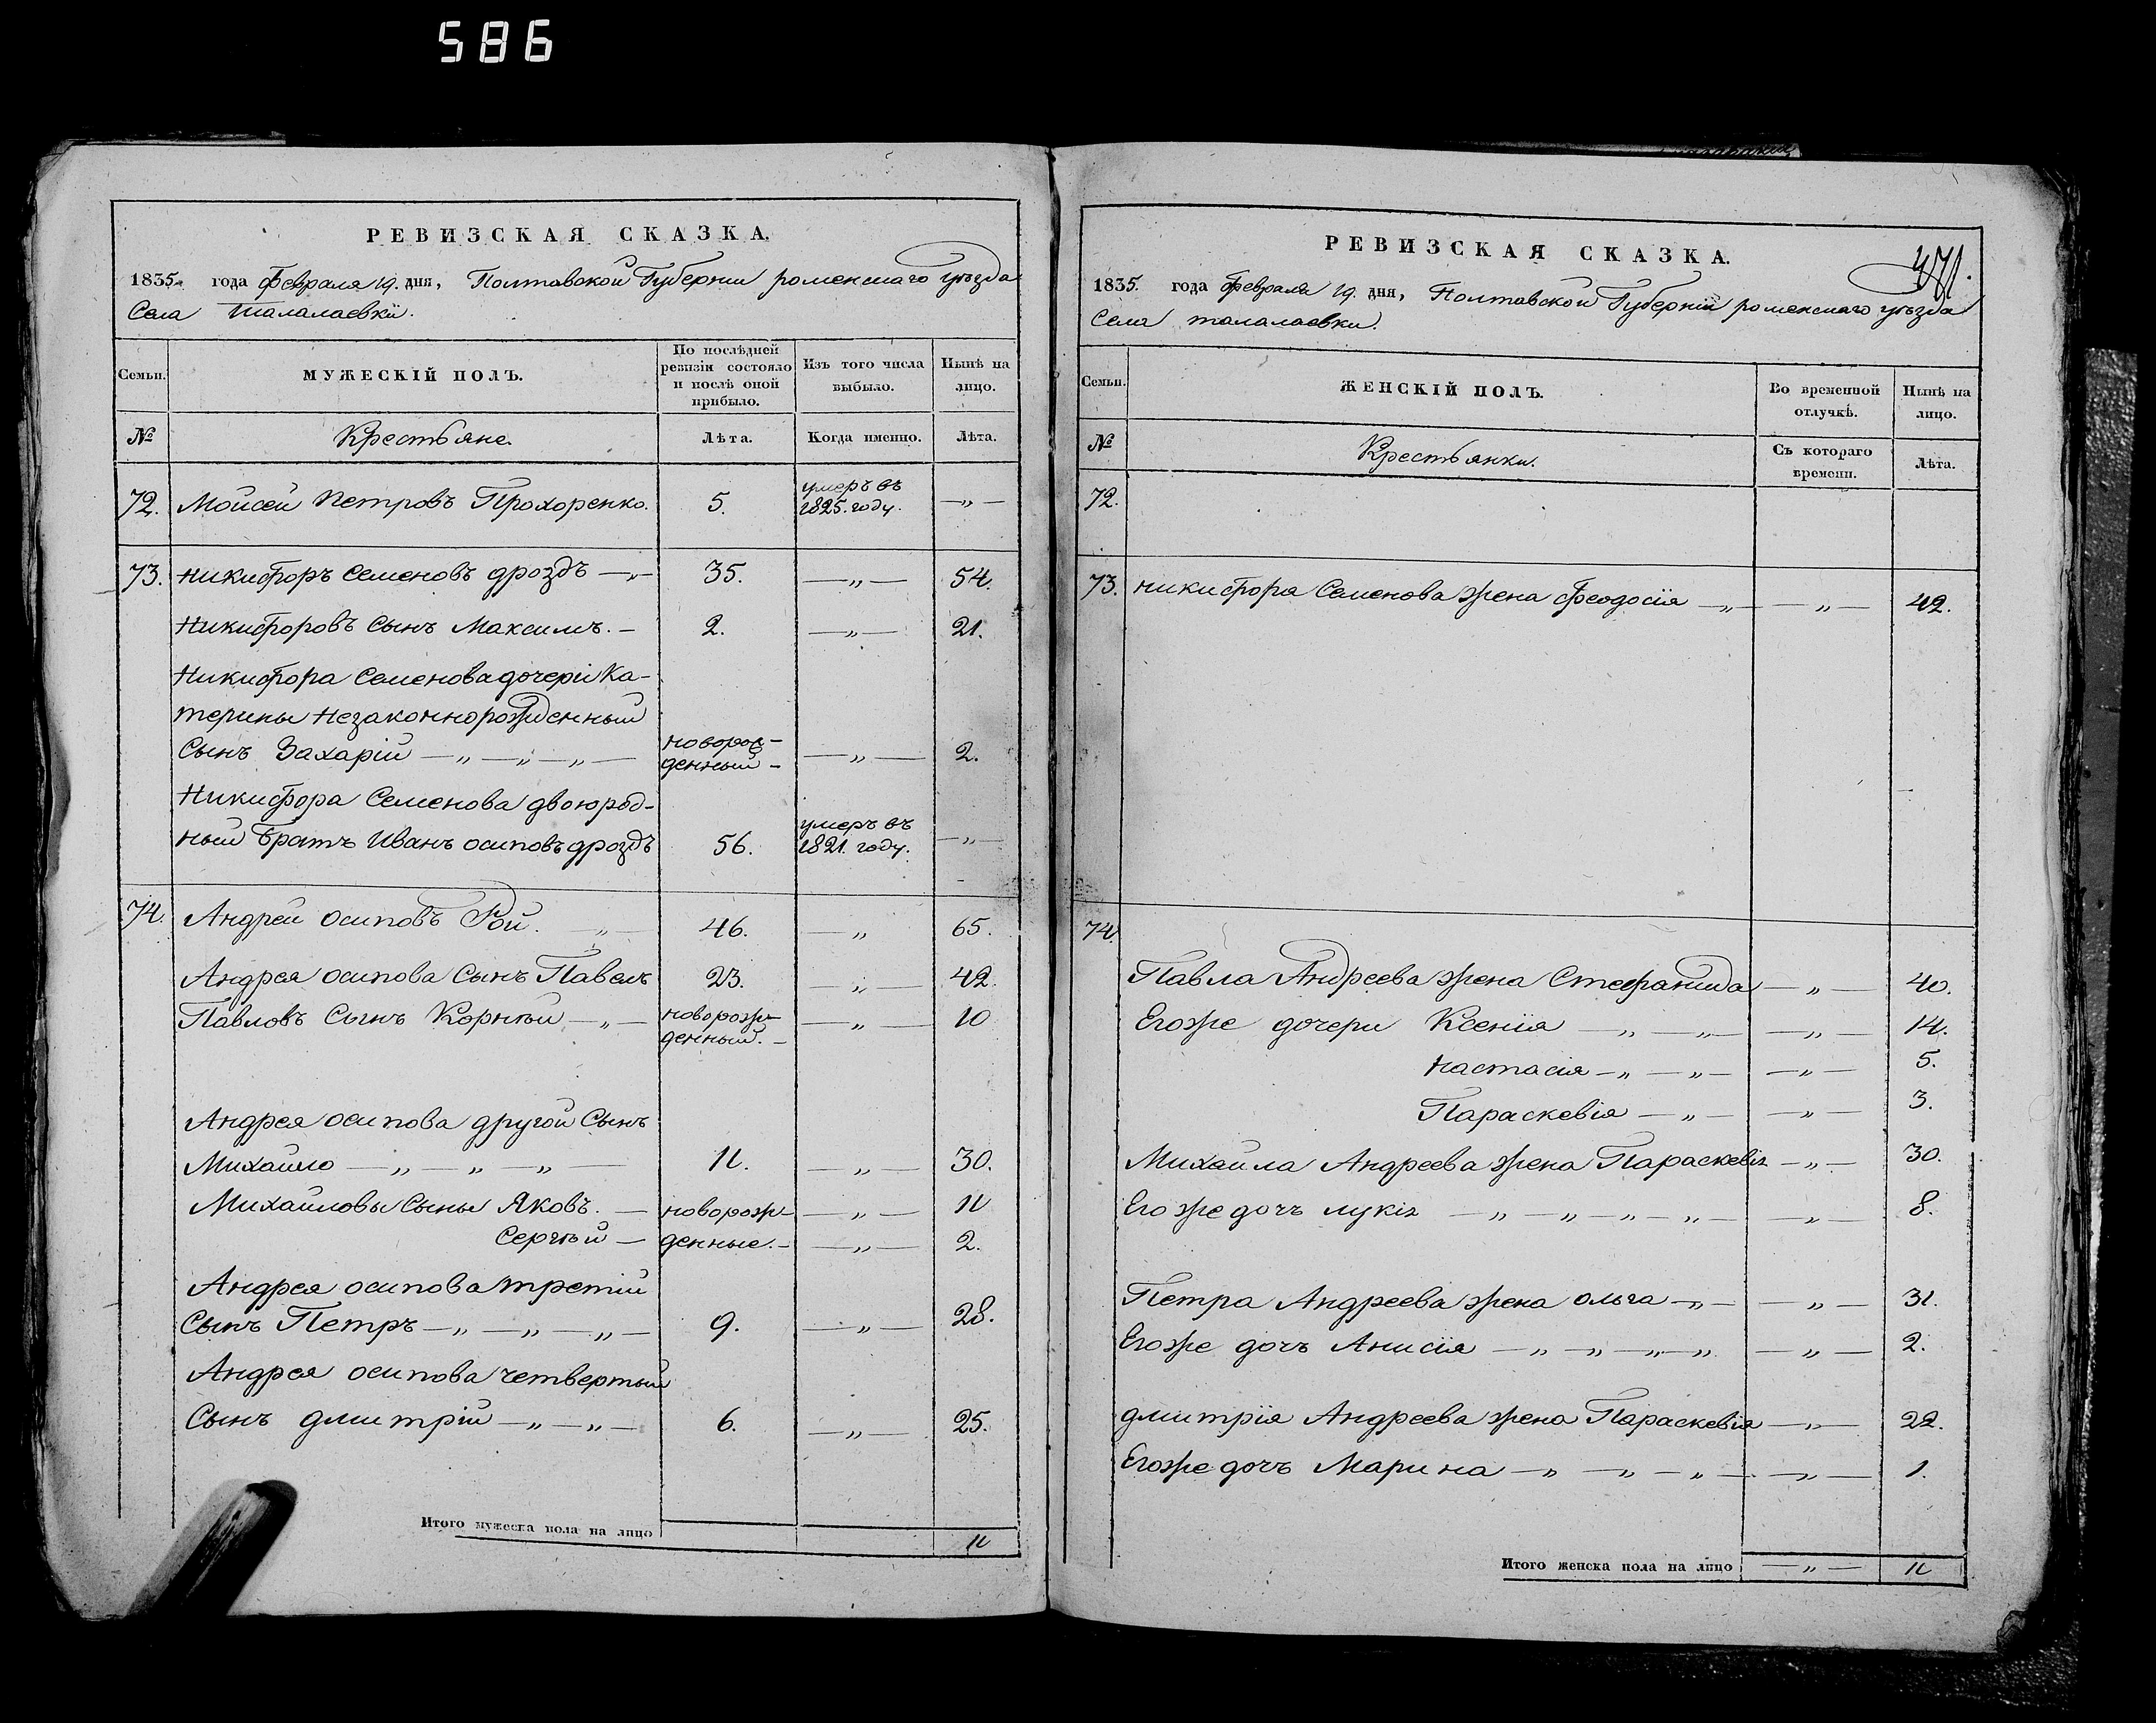 586
РЕВИЗСКАЯ СКАЗКА.
1835. года Февраля 19. дня, Полтавской Губернии роменскаго уѣзда
Села Талалаевки.
Семьи. МУЖЕСКІЙ ПОЛЪ. По послѣдней ревизіи состояло и послѣ оной прибыло. Изъ того числа выбыло. Нынѣ на лицо.
№ Крестьяне. Лѣта. Когда именно. Лѣта.
72. Мойсей Петровъ Прохоренко. 5. умеръ въ 1825. году. —„—
73. Никифоръ Семеновъ дроздъ —„— 35. —„— 54.
Никифоровъ Сынъ Максимъ. — 2. —„— 21.
Никифора Семенова дочери Ка-
терины Незаконнорожденный
Сынъ Захарій —„—„—„— новорож-денный — —„— 2.
Никифора Семенова двоюрод-
ный братъ Иванъ осиповъ дроздъ 56. умеръ въ 1821. году. —„—
74. Андрей осиповъ Рой. —„— 46. —„ 65.
Андрея осипова Сынъ Павелъ 23. —„— 42.
Павловъ Сынъ Корнѣй —„— новорож-денный. — —„— 10
Андрея осипова другой Сынъ
Михайло —„—„—„— 11. —„— 30.
Михайловы Сыны Яковъ. — новорож- —„— 11
Сергѣй — денные. — —„— 2.
Андрея осипова третій
Сынъ Петръ —„—„—„— 9. —„— 28.
Андрея осипова четвертый
Сынъ дмитрій —„—„— 6. —„— 25.
Итого мужеска пола на лицо 11
471.
РЕВИЗСКАЯ СКАЗКА.
1835. года Февраля 19. дня, Полтавской Губерніи роменскаго уѣзда
Села талалаевки.
Семьи. ЖЕНСКІЙ ПОЛЪ. Во временной отлучкѣ. Нынѣ на лицо.
№ Крестьянки. Съ котораго времени. Лѣта.
72.
73. Никифора Семенова жена Феодосія —„— —„— 42.
74.
Павла Андреева жена Стефанида —„— 40.
Егоже дочери Ксенія —„—„— —„— 14.
Настасія —„—„— —„— 5.
Параскевія —„— —„— 3.
Михаила Андреева жена Параскевія —„— 30.
Егоже дочь лукія —„—„—„—„— —„— 8.
Петра Андреева жена ольга —„— —„— 31.
Егоже дочь Анисія —„—„—„—„ —„— 2.
дмитрія Андреева жена Параскевія —„— 22.
Егоже дочь Марина —„—„—„— —„— 1.
Итого женска пола на лицо —„— 11